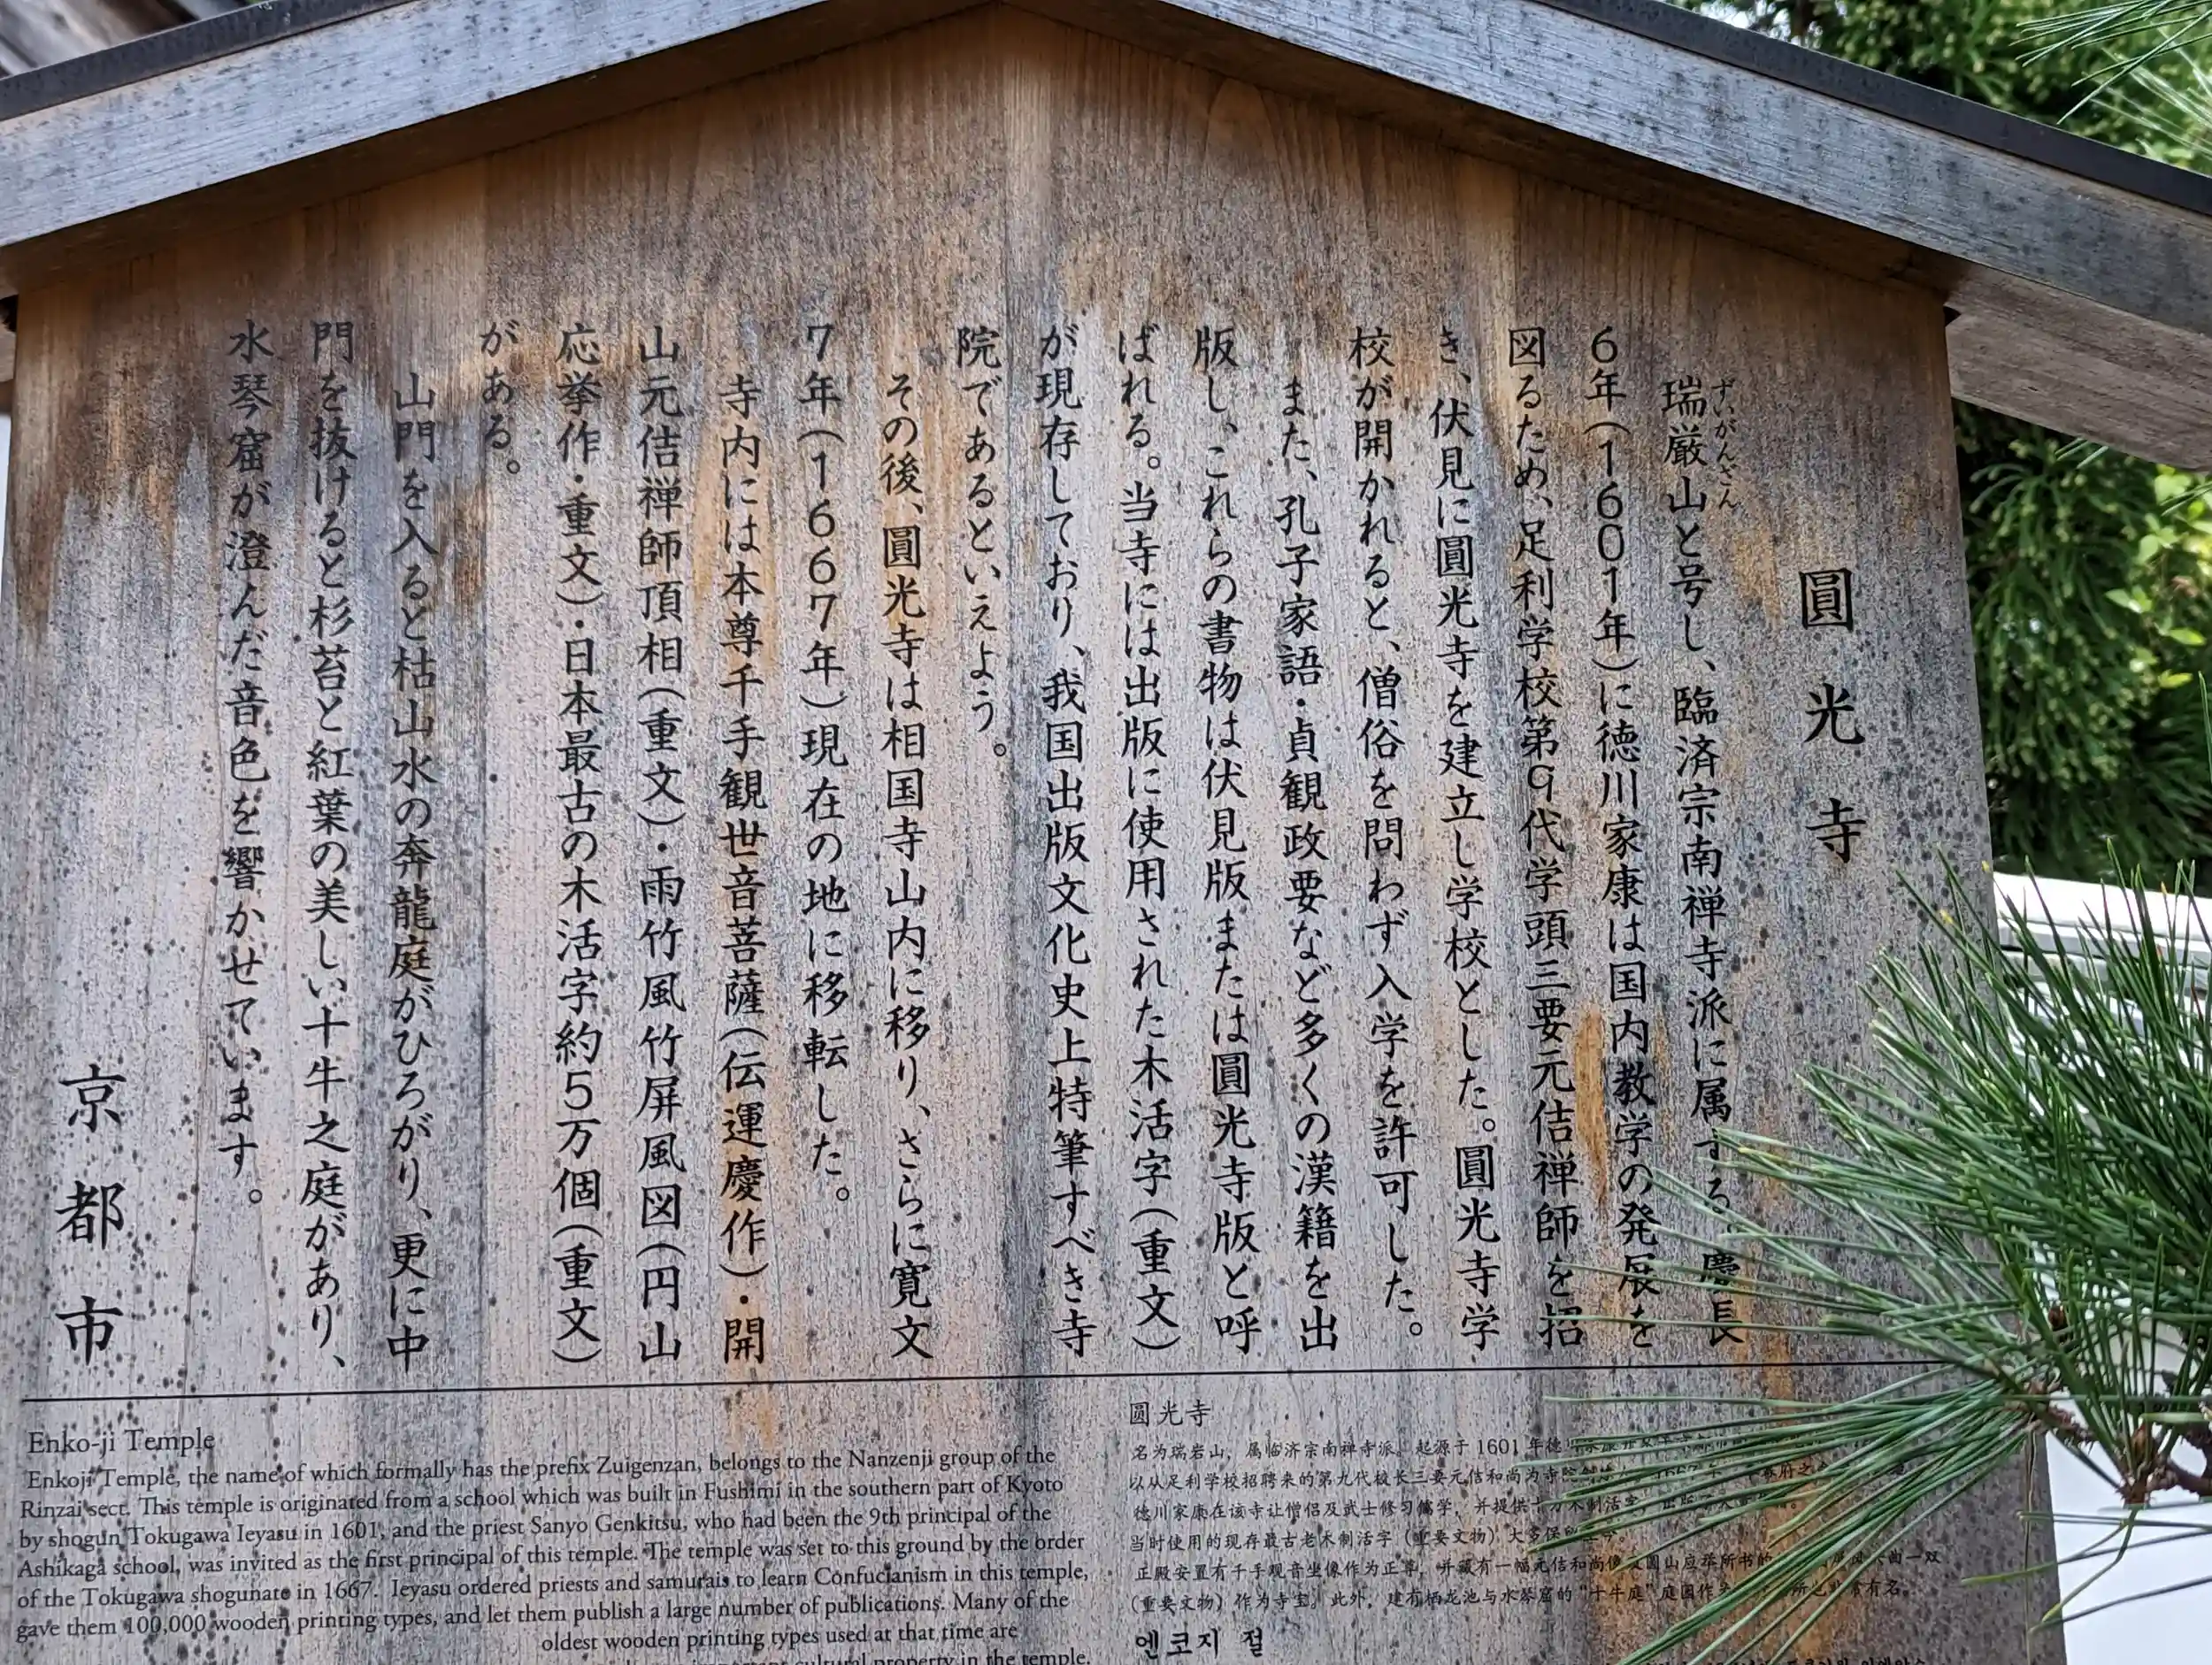 圓光寺
ずいがんざん
瑞厳山と号し、臨済宗南禅寺派に属する。慶長
6年（1601年）に徳川家康は国内教学の発展を
図るため、足利学校第9代学頭三要元佶禅師を招
き、伏見に圓光寺を建立し学校とした。圓光寺学
校が開かれると、僧俗を問わず入学を許可した。
また、孔子家語・貞観政要など多くの漢籍を出
版し、これらの書物は伏見版または圓光寺版と呼
ばれる。当寺には出版に使用された木活字（重文）
が現存しており、我国出版文化史上特筆すべき寺
院であるといえよう。
その後、圓光寺は相国寺山内に移り、さらに寛文
7年（1667年）現在の地に移転した。
寺内には本尊千手観世音菩薩（伝運慶作）・開
山元佶禅師頂相（重文）・雨竹風竹屏風図（円山
応挙作・重文）・日本最古の木活字約5万個（重文）
がある。
山門を入ると枯山水の奔龍庭がひろがり、更に中
門を抜けると杉苔と紅葉の美しい十牛之庭があり、
水琴窟が澄んだ音色を響かせています。
京都市
Enko-ji Temple
Enkoji Temple, the name of which formally has the prefix Zuigenzan, belongs to the Nanzenji group of the
Rinzai sect. This temple is originated from a school which was built in Fushimi in the southern part of Kyoto
by shogun Tokugawa Ieyasu in 1601, and the priest Sanyo Genkitsu, who had been the 9th principal of the
Ashikaga school, was invited as the first principal of this temple. The temple was set to this ground by the order
of the Tokugawa shogunate in 1667. Ieyasu ordered priests and samurais to learn Confucianism in this temple,
gave them 100,000 wooden printing types, and let them publish a large number of publications. Many of the
oldest wooden printing types used at that time are
cultural property in the temple.
圆光寺
名为瑞岩山，属临济宗南禅寺派。起源于1601年德
以从足利学校招聘来的第九代校长三要元佶和尚为寺院
德川家康在该寺让僧侣及武士修习儒学，并提供十万木制活字，出版
当时使用的现存最古老木制活字（重要文物）大多保
正殿安置有千手观音坐像作为正尊，并藏有一幅元佶和尚像及圆山应举所书的
（重要文物）作为寺宝。此外，建有栖龙池与水琴窟的“十牛庭”庭园作
엔코지 절